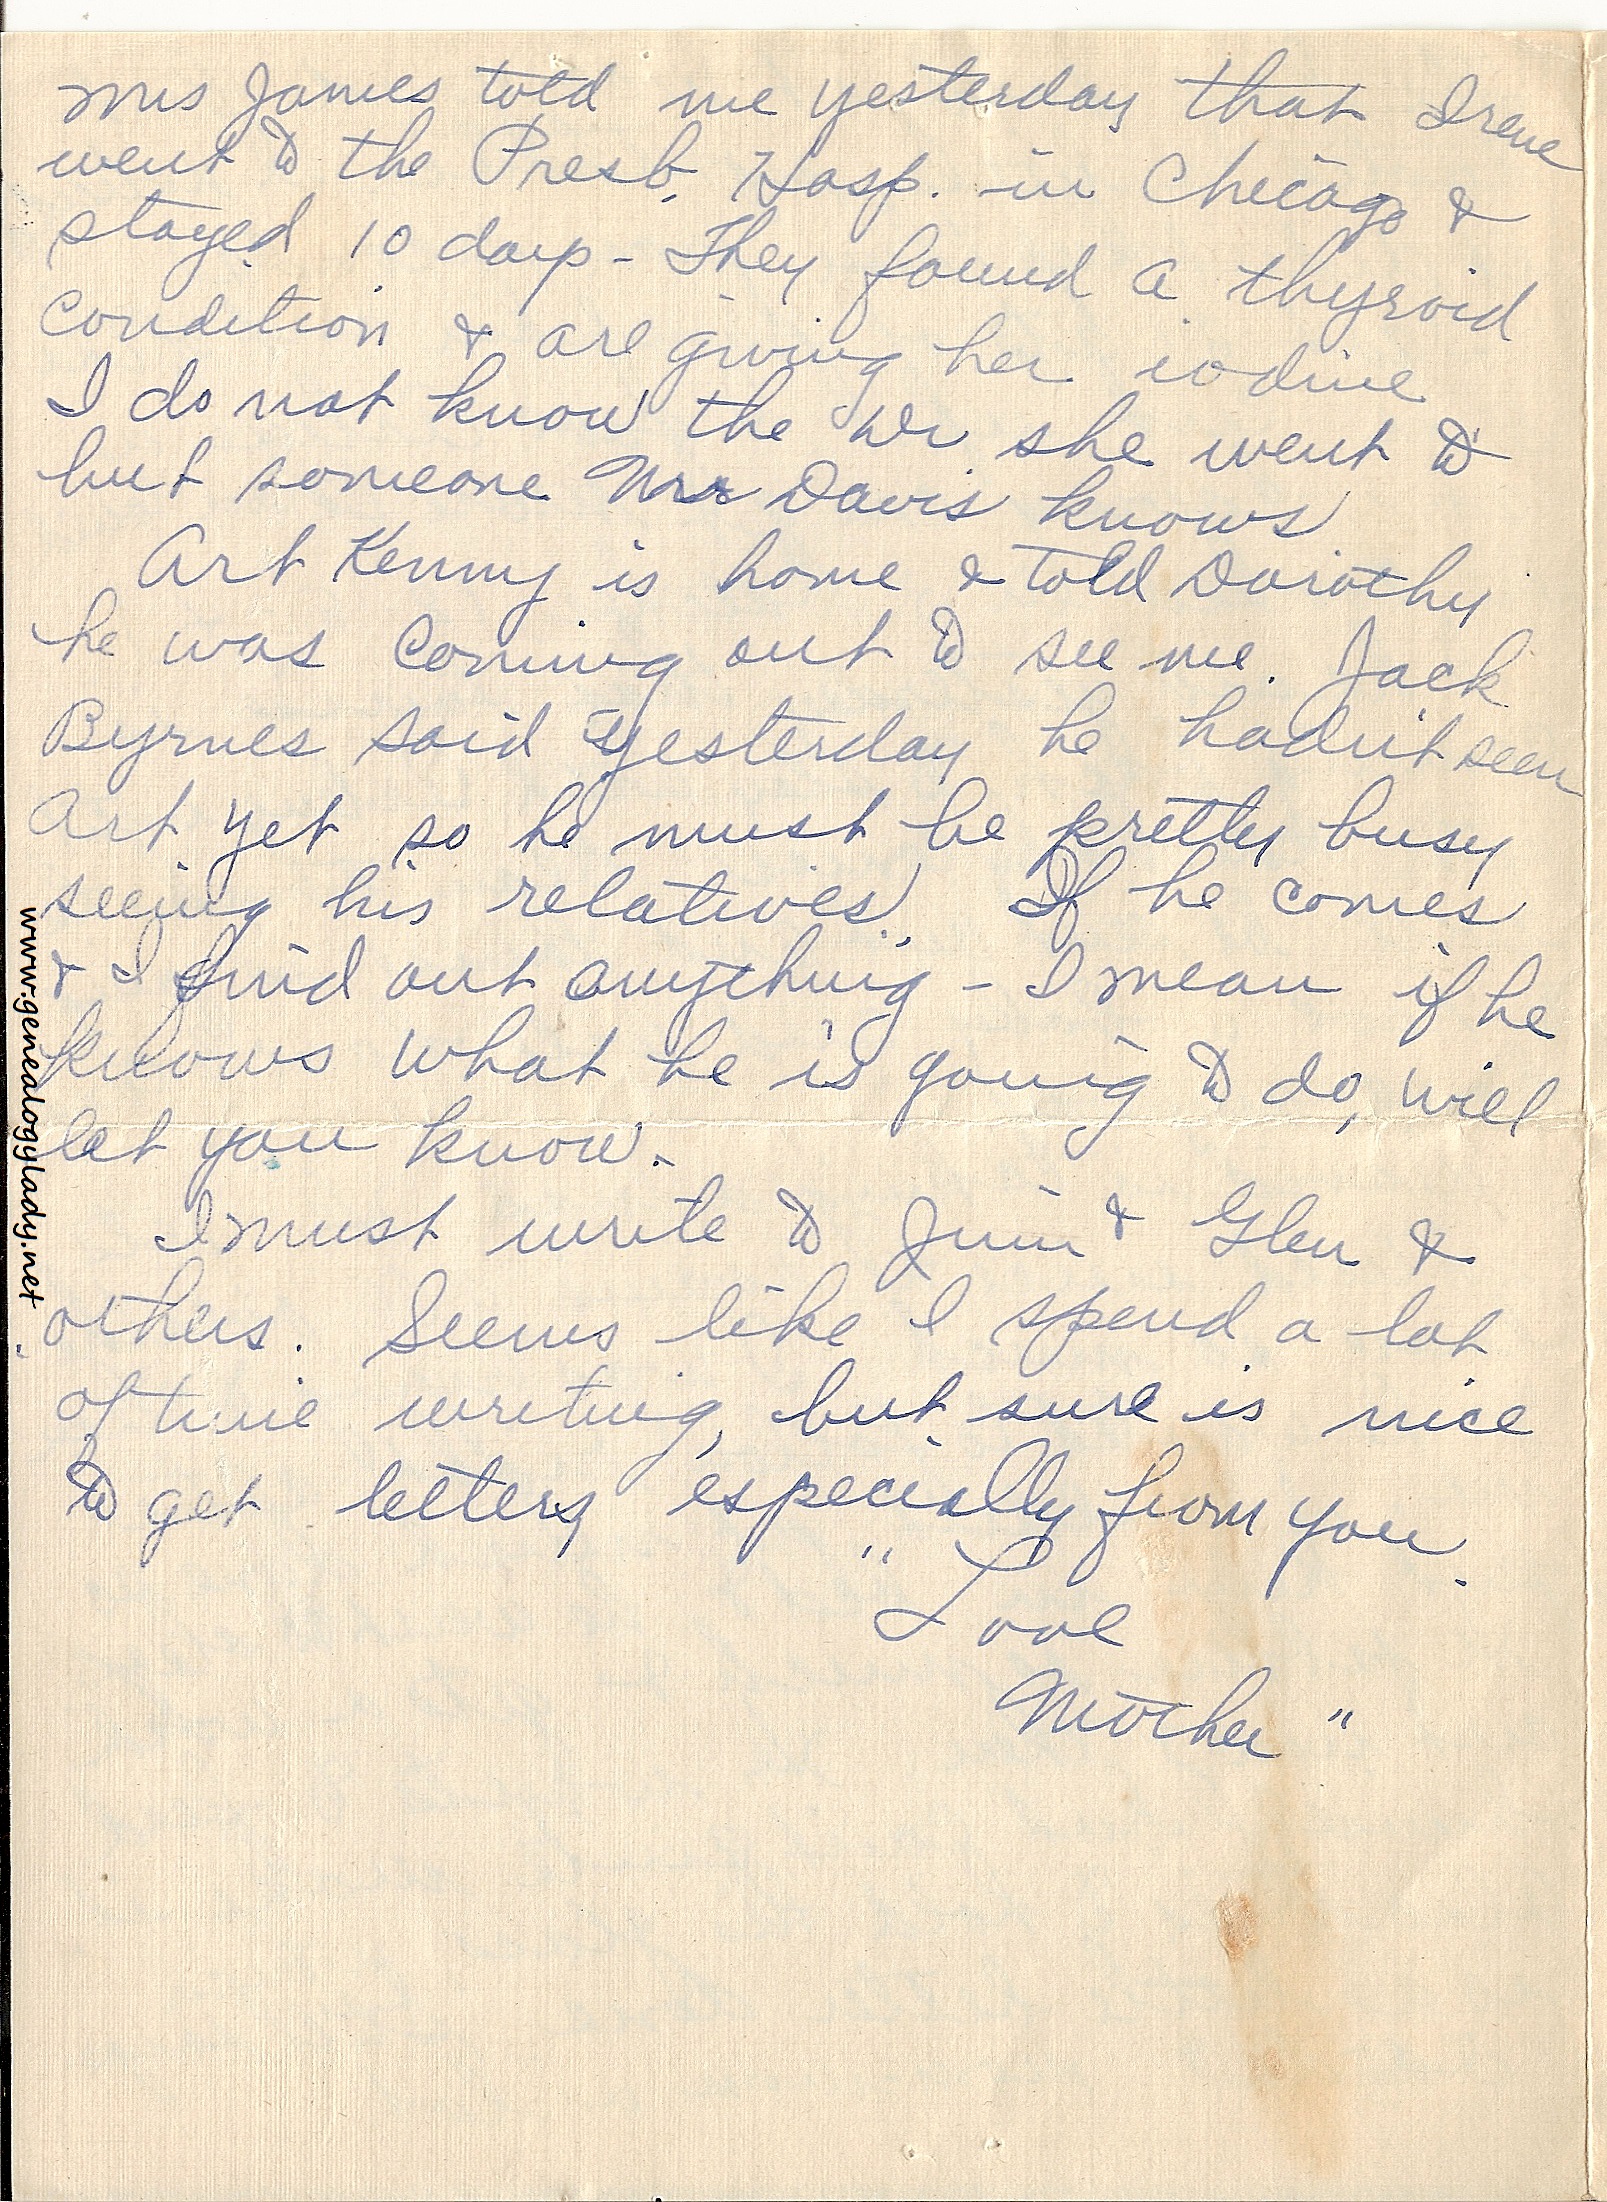 Mrs James told me yesterday that Irene
went to the Presb. Hosp. in Chicago &
stayed 10 days - They found a thyroid
condition & are giving her iodine
I do not know the Dr she went to
but someone Mrs Davis knows
Art Kenny is home & told Dorothy
he was coming out to see me. Jack
Byrnes said yesterday he hadn't seen
Art yet so he must be pretty busy
seeing his relatives. If he comes
& I find out anything - I mean if he
knows what he is going to do, will
let you know.
I must write to Jim & Glen &
others. Seems like I spend a lot
of time writing, but sure is nice
to get letters, especially from you.
"Love
Mother"
www.genealogylady.net